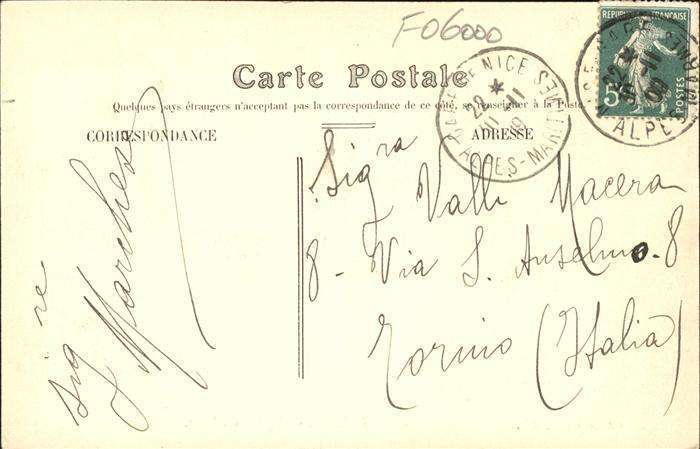 F06000
Carte Postale
Quelques pays étrangers n'acceptant pas la correspondance de ce côté, se renseigner à la Poste.
CORRESPONDANCE
ADRESSE
Sig re
Marchesi
Sig ra
Valli Macera
8 - Via S. Anselmo. 8
Torino (Italia)
NICE
22 - 11
ALPES-MARITMES
REPUBLIQUE FRANÇAISE
5
POSTES
ALPES